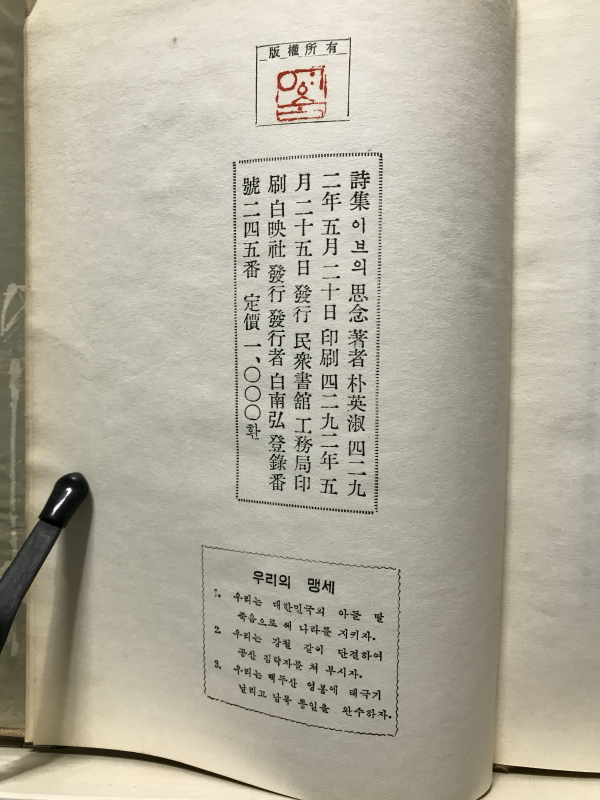 版權所有
詩集 이브의 思念 著者 朴英淑 四二九
二年 五月 二十日 印刷 四二九二年 五
月 二十五日 發行 民衆書舘 工務局 印
刷 白映社 發行 發行者 白南弘 登錄番
號 二四五番 定價 一、〇〇〇환
우리의 맹세
1. 우리는 대한민국의 아들 딸
죽음으로써 나라를 지키자.
2. 우리는 강철 같이 단결하여
공산 침략자를 쳐 부시자.
3. 우리는 백두산 영봉에 태극기
날리고 남북 통일을 완수하자.